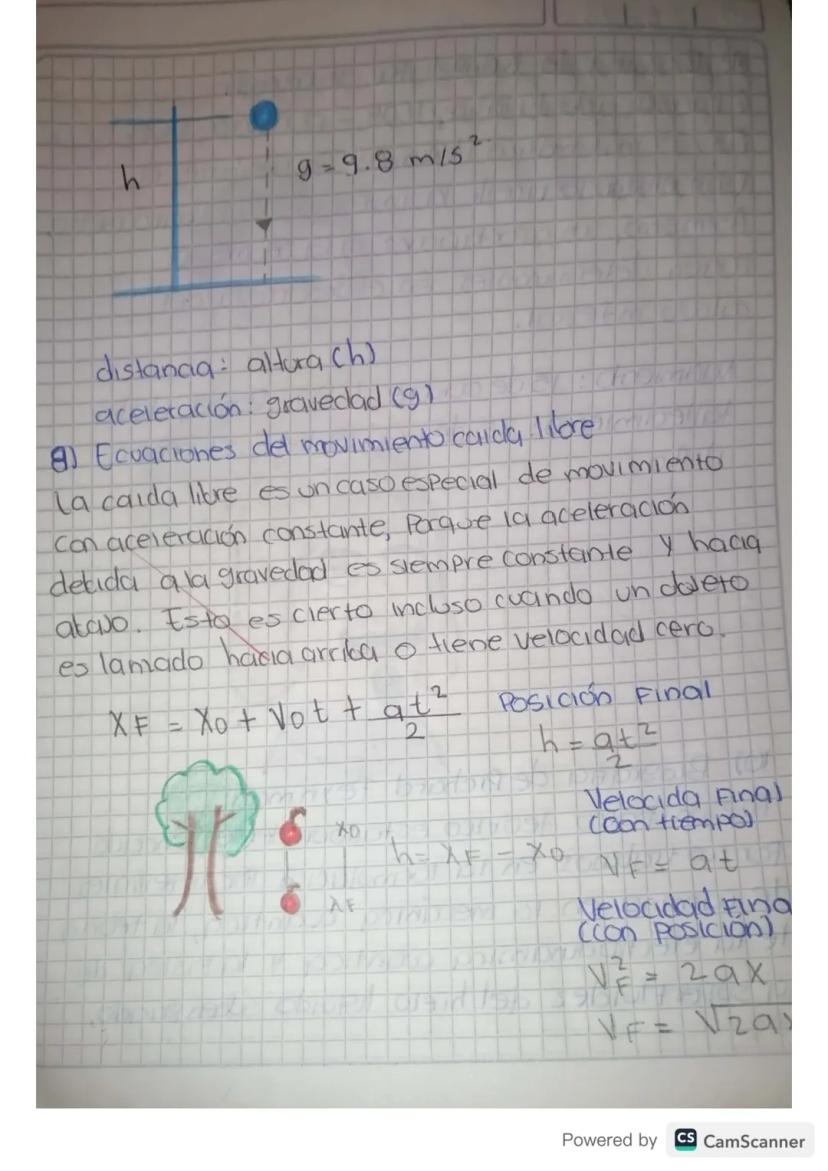 h
g = 9.8 m/s²
distancia: altura (h)
aceleración: gravedad (g)
g) Ecuaciones del movimiento caida libre
La caida libre es un caso especial de movimiento
con aceleración constante, Porque la aceleración
debida a la gravedad es siempre constante y hacia
abajo. Esto es cierto incluso cuando un objeto
es lamado hacia arriba o tiene velocidad cero.
XF = X0 + V0t + at²/2 Posición Final
h = at²/2
Velocida Final
(con tiempo)
X0
h = XF - X0 VF = at
XF
Velocidad Fina
(con posición)
VF² = 2ax
VF = √2ax
Powered by CS CamScanner